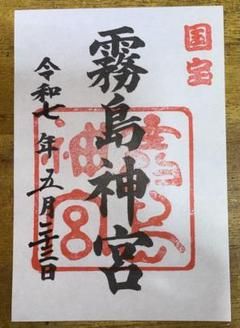 国宝
霧島神宮
令和七年五月二十三日